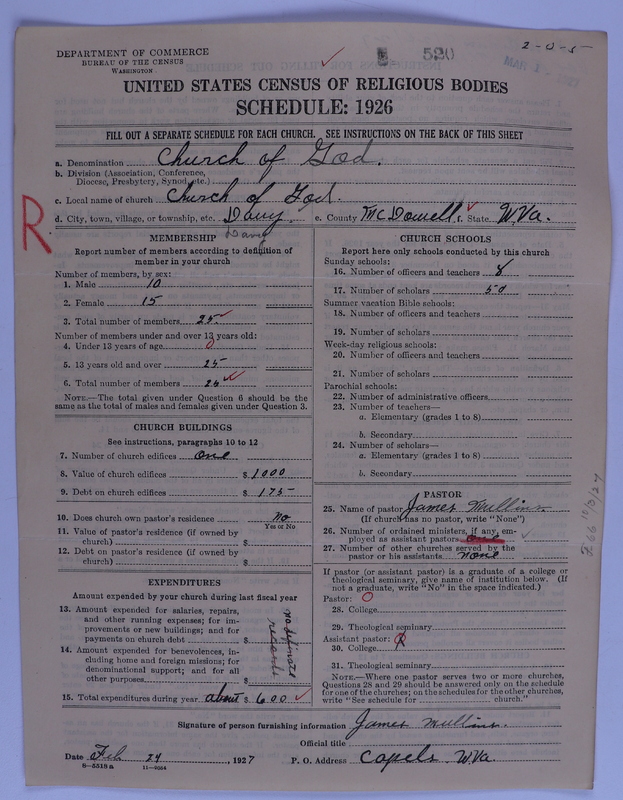 DEPARTMENT OF COMMERCE
BUREAU OF THE CENSUS
WASHINGTON
520
2-0-5
UNITED STATES CENSUS OF RELIGIOUS BODIES
SCHEDULE: 1926
FILL OUT A SEPARATE SCHEDULE FOR EACH CHURCH. SEE INSTRUCTIONS ON THE BACK OF THIS SHEET
a. Denomination Church of God.
b. Division (Association, Conference, Diocese, Presbytery, Synod, etc.)
c. Local name of church Church of God.
d. City, town, village, or township, etc. Davy. e. County McDowell f. State W. Va.
Davy
R
MEMBERSHIP
Report number of members according to definition of
member in your church
Number of members, by sex:
1. Male 10
2. Female 15
3. Total number of members 25
Number of members under and over 13 years old:
4. Under 13 years of age 0
5. 13 years old and over 25
6. Total number of members 25
NOTE.—The total given under Question 6 should be
same as the total of males and females given under Question 3.
CHURCH BUILDINGS
See instructions, paragraphs 10 to 12
7. Number of church edifices one
8. Value of church edifices $ 1000
9. Debt on church edifices $ 175
10. Does church own pastor's residence no
Yes or No
11. Value of pastor's residence (if owned by
church) $
12. Debt on pastor's residence (if owned by
church) $
EXPENDITURES
Amount expended by your church during last fiscal year
13. Amount expended for salaries, repairs,
and other running expenses; for im-
provements or new buildings; and for
payments on church debt $
14. Amount expended for benevolences, in-
cluding home and foreign missions; for
denominational support; and for all
other purposes $
no definate
records
15. Total expenditures during year about $ 600
CHURCH SCHOOLS
Report here only schools conducted by this church
Sunday schools:
16. Number of officers and teachers 8
17. Number of scholars 50
Summer vacation Bible schools:
18. Number of officers and teachers
19. Number of scholars
Week-day religious schools:
20. Number of officers and teachers
21. Number of scholars
Parochial schools:
22. Number of administrative officers
23. Number of teachers—
a. Elementary (grades 1 to 8)
b. Secondary
24. Number of scholars—
a. Elementary (grades 1 to 8)
b. Secondary
PASTOR
25. Name of pastor James Mullins
(If church has no pastor, write "None")
26. Number of ordained ministers, if any, em-
ployed as assistant pastors one
27. Number of other churches served by the
pastor or his assistants none
If pastor (or assistant pastor) is a graduate of a college or
theological seminary, give name of institution below. (If
not a graduate, write "No" in the space indicated.)
Pastor: 0
28. College
29. Theological seminary
Assistant pastor:
30. College
31. Theological seminary
NOTE.—Where one pastor serves two or more churches,
Questions 28 and 29 should be answered only on the schedule
for one of the churches; on the schedules for the other churches,
write "See schedule for church."
Signature of person furnishing information James Mullins.
Official title
Date Feb 24, 1927 P. O. Address Capels W. Va.
8-5518a 11-9664